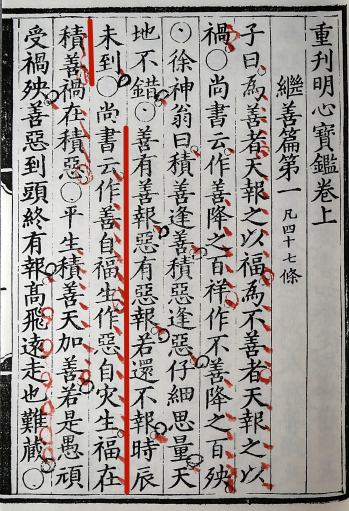 重刋明心寶鑑卷上
繼善篇第一 凡四十七條
子曰爲善者天報之以福爲不善者天報之以
禍〇尚書云作善降之百祥作不善降之百殃
〇徐神翁曰積善逢善積惡逢惡仔細思量天
地不錯〇善有善報惡有惡報若還不報時辰
未到〇尚書云作善自福生作惡自灾生福在
積善禍在積惡〇平生積善天加善若是愚頑
受禍殃善惡到頭終有報高飛遠走也難蔵〇